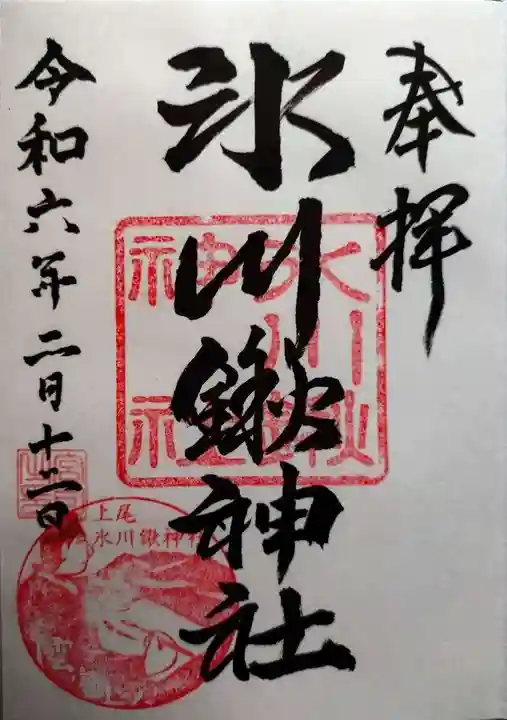 奉拝
氷川鍬神社
令和六年二月十二日
氷川鍬神社
上尾
氷川鍬神社